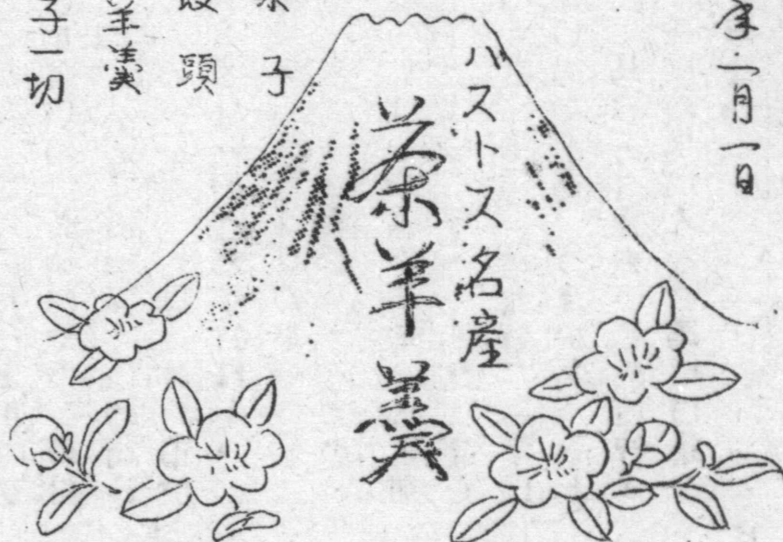 年一月一日
バストス名産
茶羊羹
子
頭
羊羹
子一切